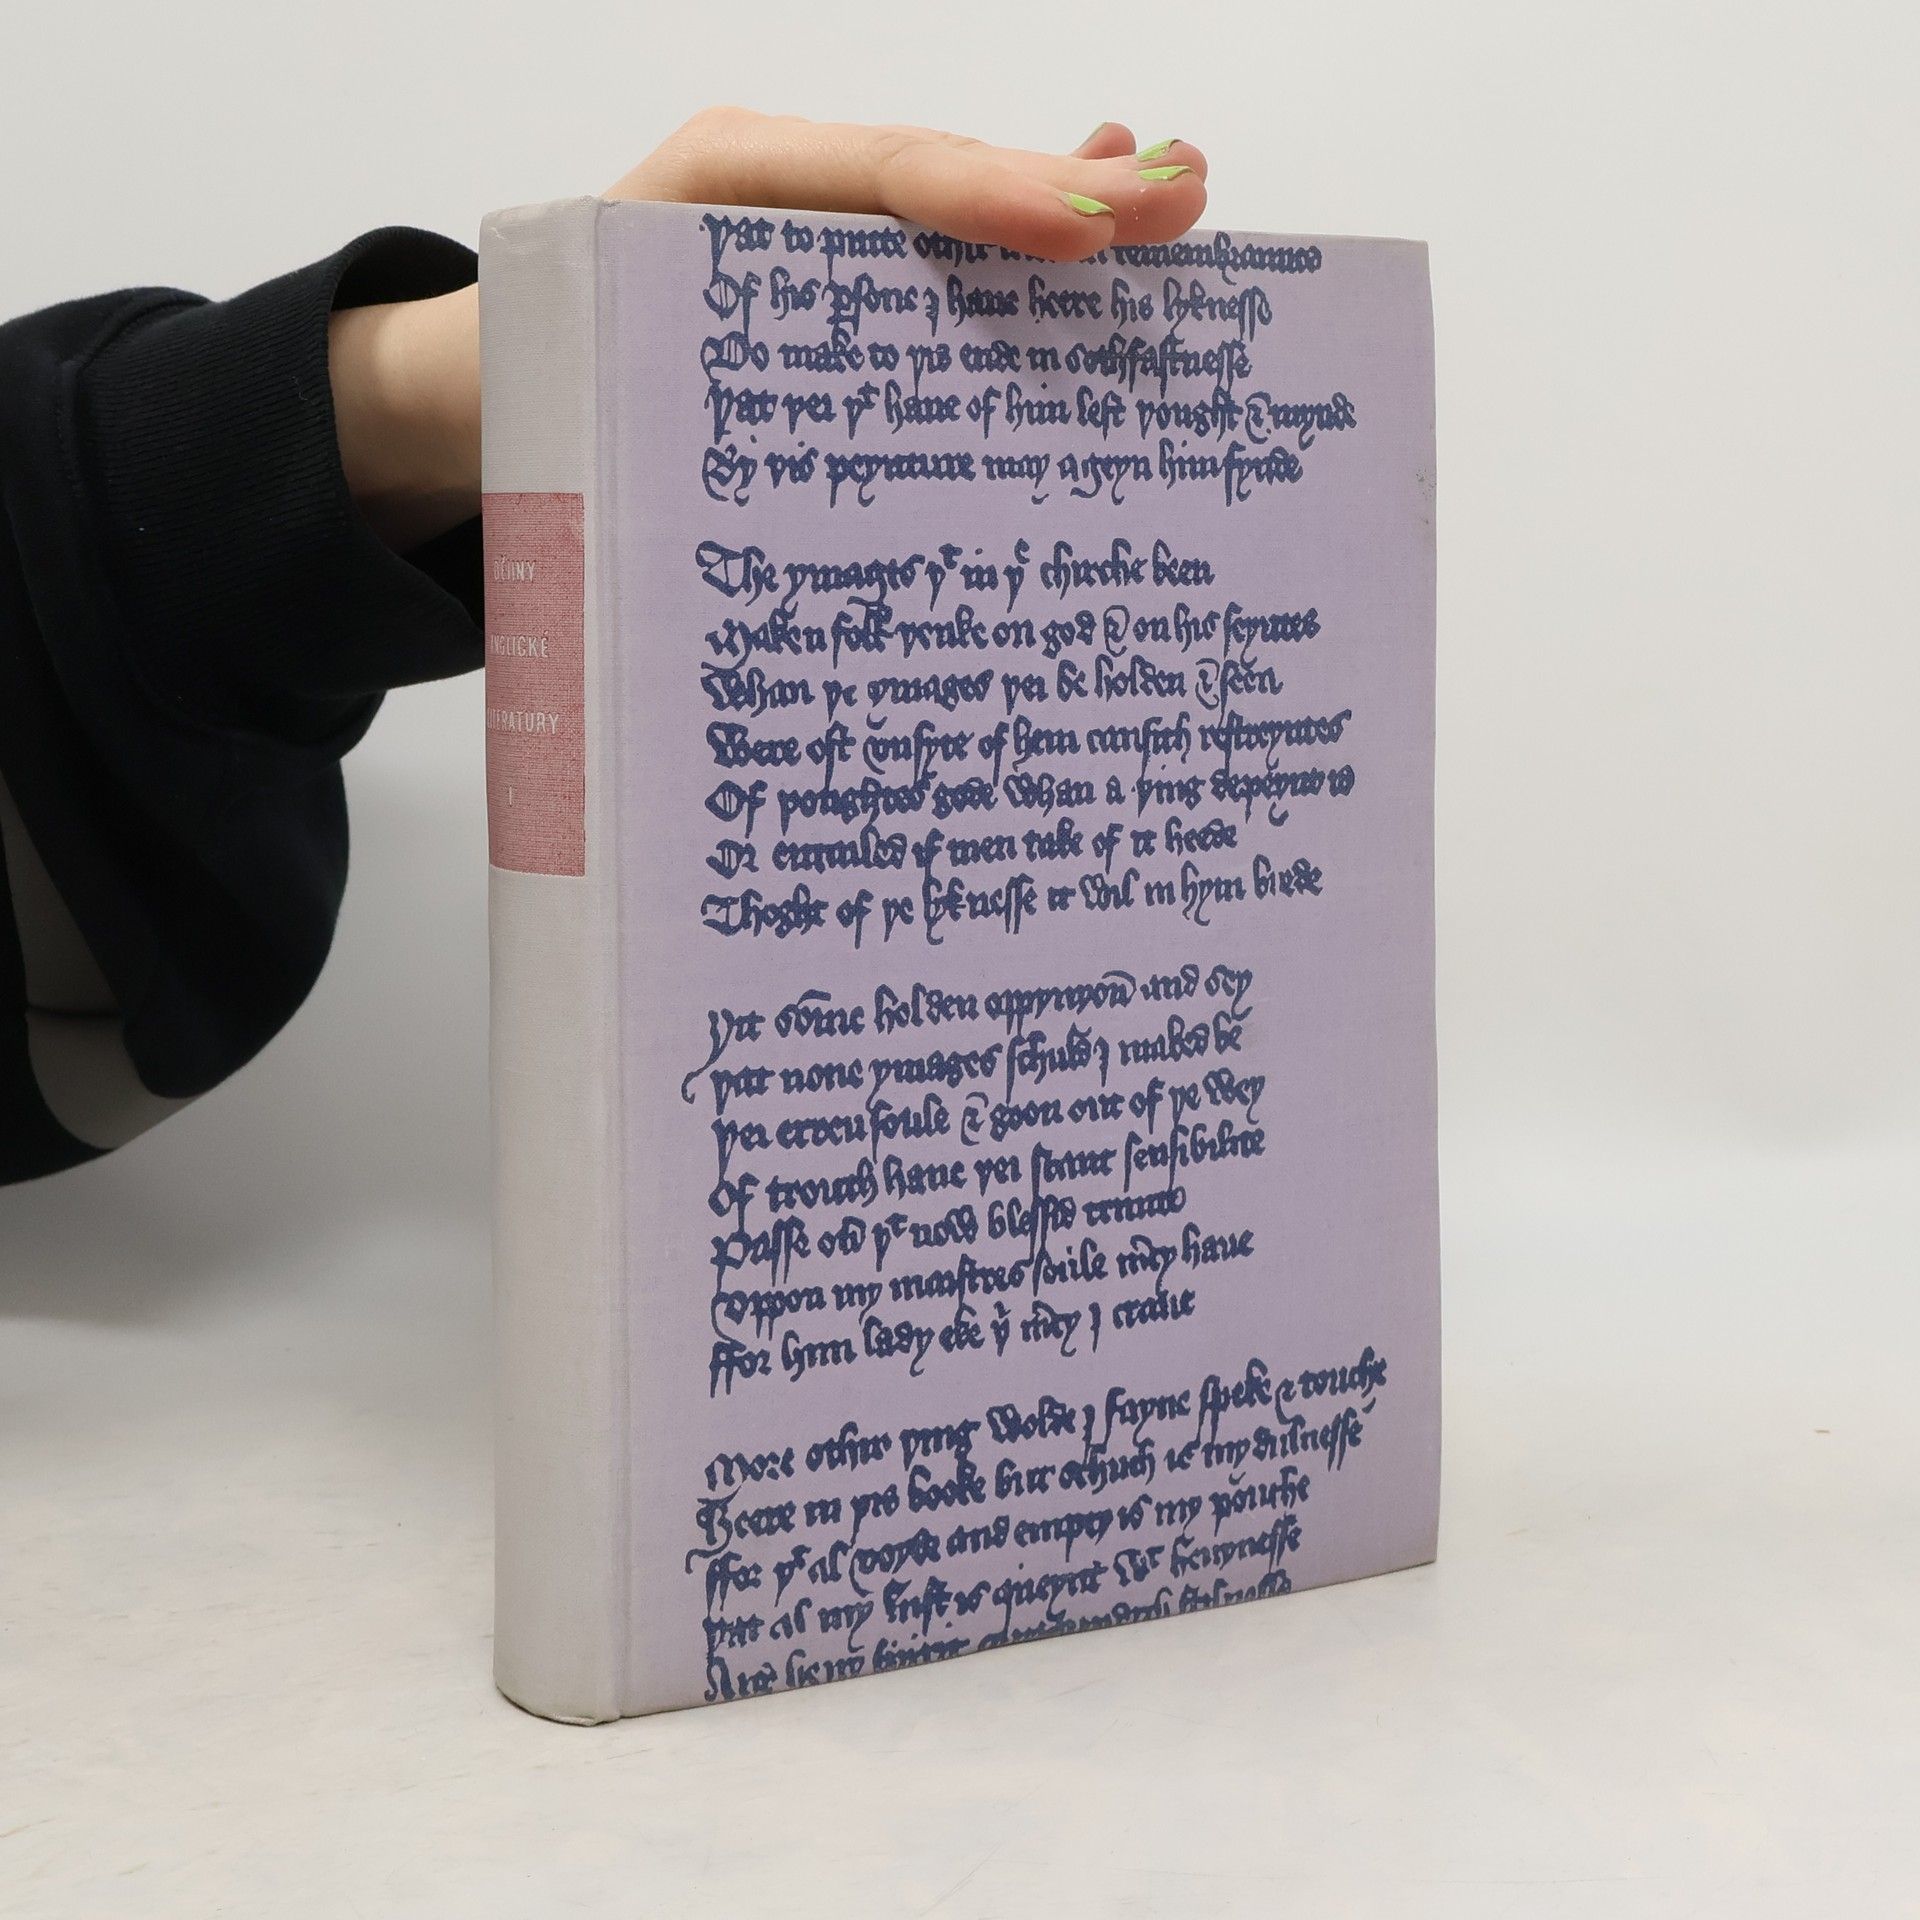 DĚJINY
ANGLICKÉ
LITERATURY
I
Þat to putte othir in remembraunce
Of his ꝑsone I haue heere his lyknesse
Do make to þis ende in sothfastnesse
Þat þei þᵗ haue of him left þought & mynde
By þis peynture may ageyn him fynde
The ymages þᵗ in þᵉ chirche been
Maken folk þenke on god & on his seyntes
Whan þe ymages þei be holden & seen
Were oft vnsyte of hem causith restreyntes
Of þoughtes gode whan a þing depeynt is
Or entailed if men take of it heede
Thoght of þe lyknesse it wil in hym brede
Yit some holden oppynyon and sey
Þat none ymages schuld I maked be
Þei erren foule & goon out of þe wey
Of trouth haue þei scant sensibilite
Passe oū þᵗ now blessid trinite
Vppon my maistres soule mcy haue
ffor him lady eke þi mcy I craue
More othir þing wolde I fayne speke & touche
Heere in þis booke but schuch is my dulnesse
ffor þᵗ al voyde and empty is my pouche
Þat al my lust is queynt wᵗ heuynesse